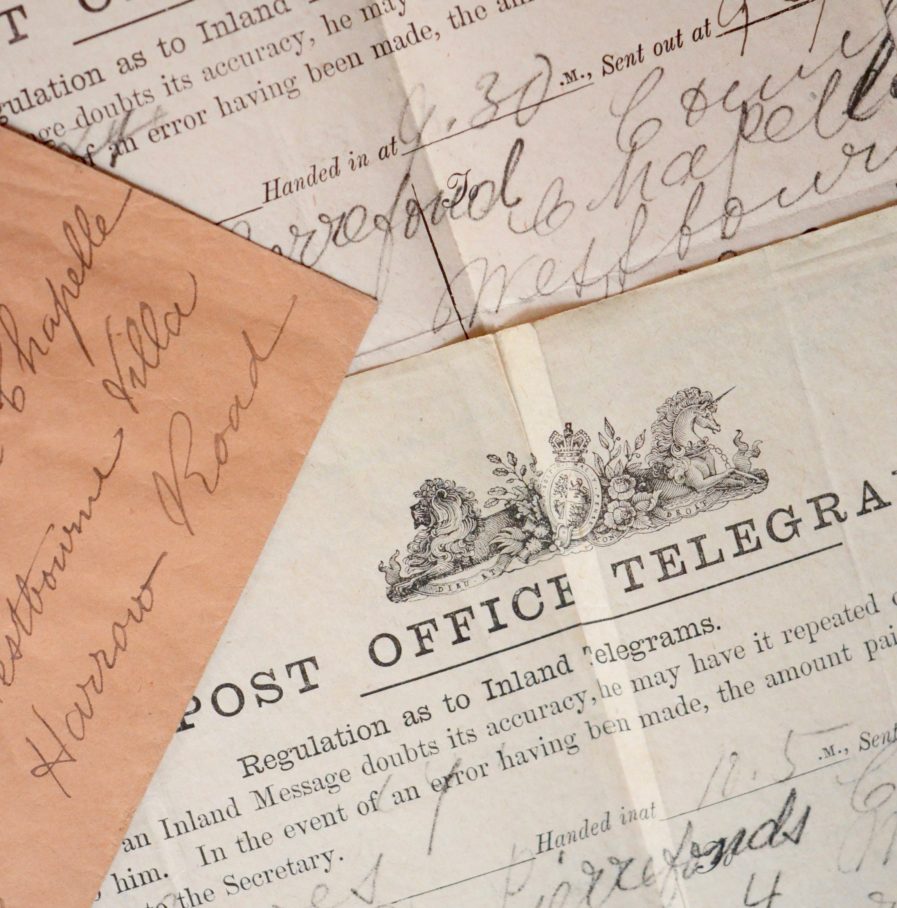 gulation as to Inland
ge doubts its accuracy, he may
of an error having been made, the am
Handed in at 9.30 .M., Sent out at 9
To
Chapelle
Westbour
Chapelle
estbourne Villa
Harrow Road
DIEU ET MON DROIT
POST OFFICE TELEGRA
Regulation as to Inland Telegrams.
an Inland Message doubts its accuracy, he may have it repeated
him. In the event of an error having ben made, the amount pai
to the Secretary.
Handed inat 10.5 .M., Sent
4